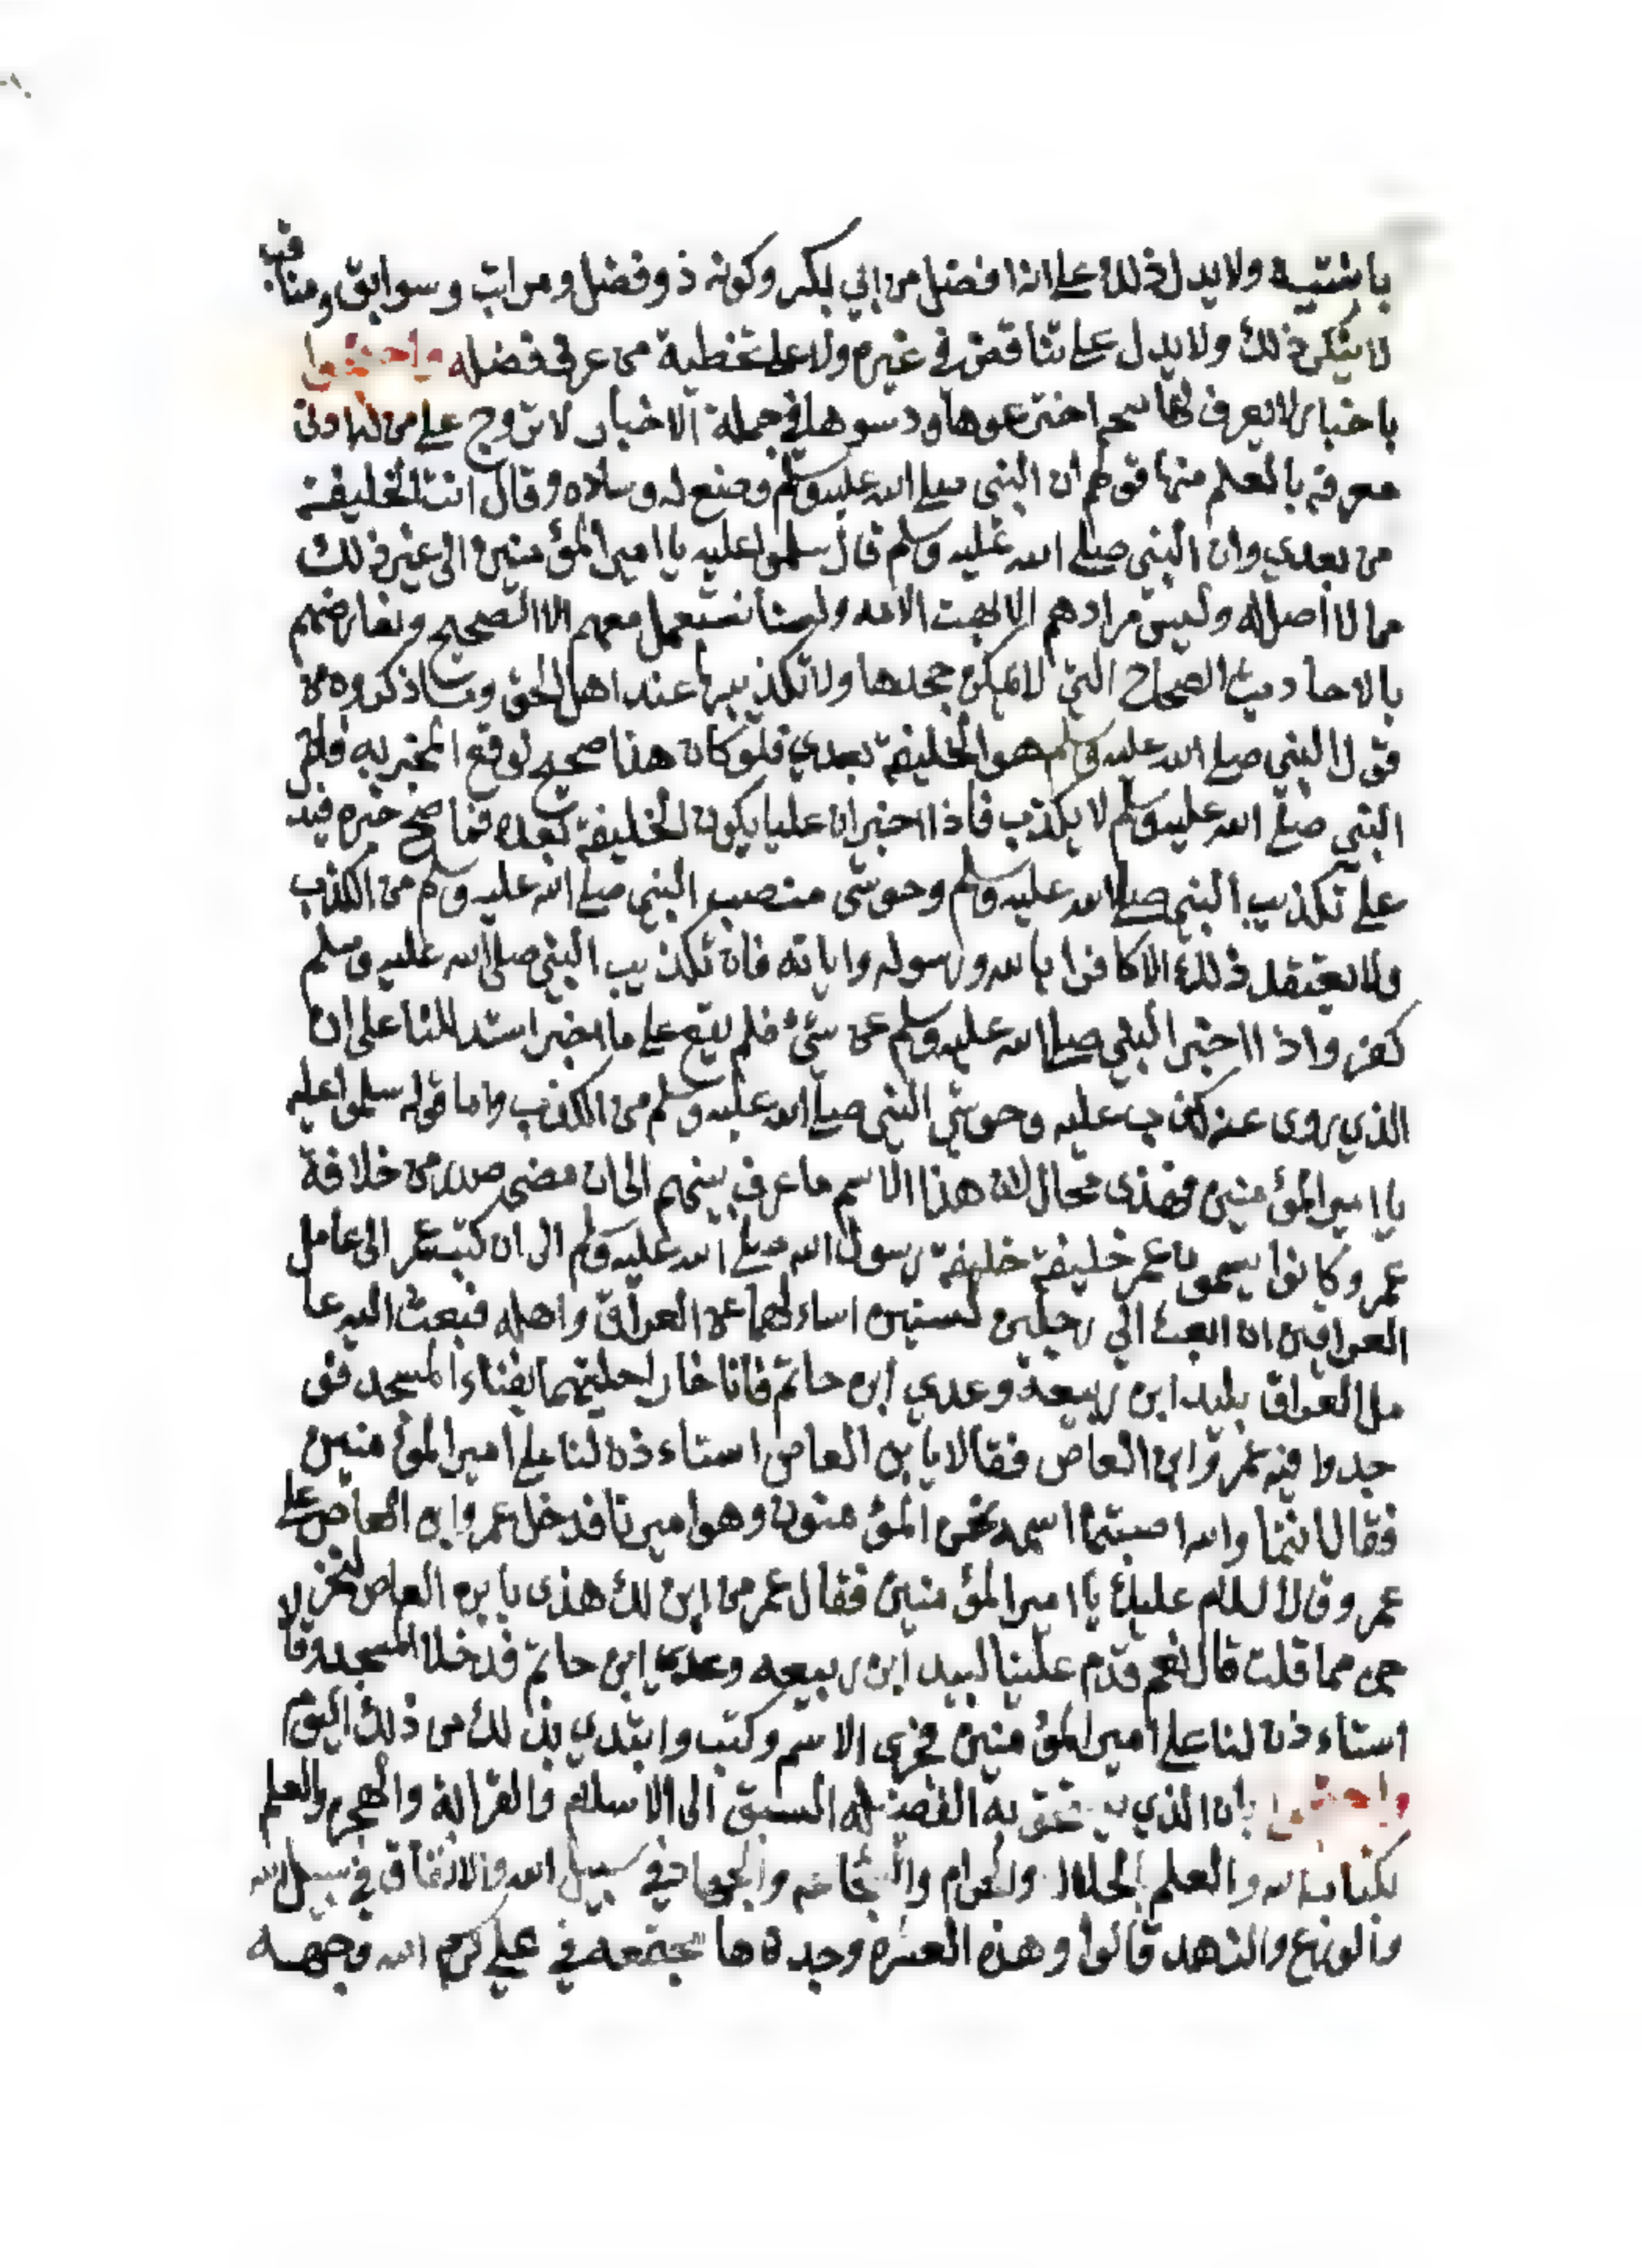 باشتيه ولا يدل ذلك على انه افضل من ابي بكر وكونه ذو فضل ومراتب وسوابق ومناقب
لا ينكر ذلك ولا يدل على تناقص في غيره ولا على تخطية من عرف فضله واحتجوا
باخبار لا يعرف لها اخترعوها ودسوها في جملة الاخبار لا تروج على من له ادنى
معرفه بالعلم منها قولهم ان النبي صلى الله عليه وسلم وضع له وسلاده وقال انت الخليفة
من بعدي وان النبي صلى الله عليه وسلم قال سلموا عليه يا امير المؤمنين الى غير ذلك
مما لا أصل له وليس مرادهم الا لا ولسنا نستعمل معهم الا الصحيح ونعارضهم
بالاحاديث الصحاح التي لا يمكن جحدها ولا تكذيبها عند اهل الحق وما ذكروه من
قول النبي صلى الله عليه وسلم هو الخليفة بعدي فلو كان هذا صحيح لوقع المخبر به فان
النبي صلى الله عليه وسلم لا يكذب فاذا اخبر ان عليا يكون الخليفة بعده فما صح خبره فيد
على تكذيب النبي صلى الله عليه وسلم وحوشى منصب النبي صلى الله عليه وسلم من الكذب
ولا يعتقد ذلك الا كافرا بالله ورسوله واياته فان تكذيب النبي صلى الله عليه وسلم
كفر واذا اخبر النبي صلى الله عليه وسلم عن شئ فلم يقع على ما اخبر استدللنا على ان
الذي روى عنه كذب عليه وحوشي النبي صلى الله عليه وسلم من الكذب واما قوله سلموا عليه
يا امير المؤمنين فهذى محال لان هذا الاسم ما عرف بينهم الى ان مضى صدر من خلافة
عمر وكانوا يسمون عمر خليفة خليفة رسول الله صلى الله عليه وسلم الى ان كتب عمر الى عامل
العراقين ان ابعث الي رجلين اساءلهما عن العراق واهله فبعث اليه عا
مل العراق بلبيد ابن ربيعة وعدي ابن حاتم فاناخا راحلتيهما بفناء المسجد فو
جدوا فيه عمروا ابن العاص فقالا يا بن العاص استاءذن لنا على امير المؤمنين
فقال انتما والله اصبتما اسمه نحن المؤمنون وهو اميرنا فدخل عمروا بن العاص على
عمر وقال السلام عليك يا امير المؤمنين فقال عمر من اين لك هذى يا بن العاص لتخر
جن مما قلت قال نعم قدم علينا لبيد ابن ربيعه وعدي ابن حاتم فدخلا المسجد وقالا
استاءذن لنا على امير المؤمنين فجرى الاسم وكتب وابتدي بذلك من ذلك اليوم
واحتجوا بان الذي يستحق به الفضل السبق الى الاسلام والقرابة والهجره والعلم
بكتاب الله والعلم بالحلال والحرام والشجاعه والجهاد في سبيل الله والانفاق في سبيل الله
والورع والزهد قالوا وهذه العشره وجدناها مجتمعه في علي كرم الله وجهه